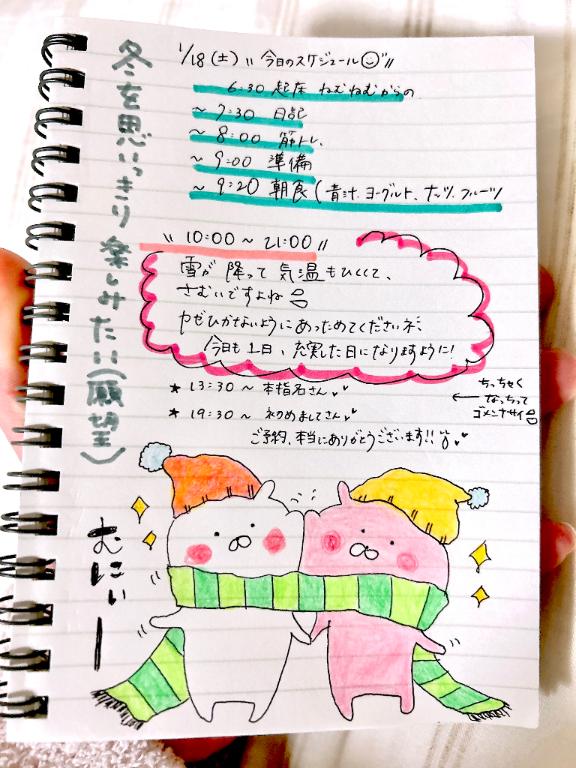 1/18(土) 〃 今日のスケジュール 〃
6:30 起床 ねむねむからの
～ 7:30 日記
～ 8:00 筋トレ、
～ 9:00 準備
～ 9:20 朝食(青汁、ヨーグルト、ナッツ、フルーツ
〃 10:00 ～ 21:00 〃
雪が降って気温もひくくて、
さむいですよね
カゼひかないようにあっためてくださいネ
今日も1日、充実した日になりますように!
★ 13:30 ～ 本指名さん
★ 19:30 ～ ネクめましてさん
ご予約、本当にありがとうございます!!
ちっちゃく
なっちって
ゴメンナサイ
冬を思いっきり楽しみたい(願望)
むにぃー